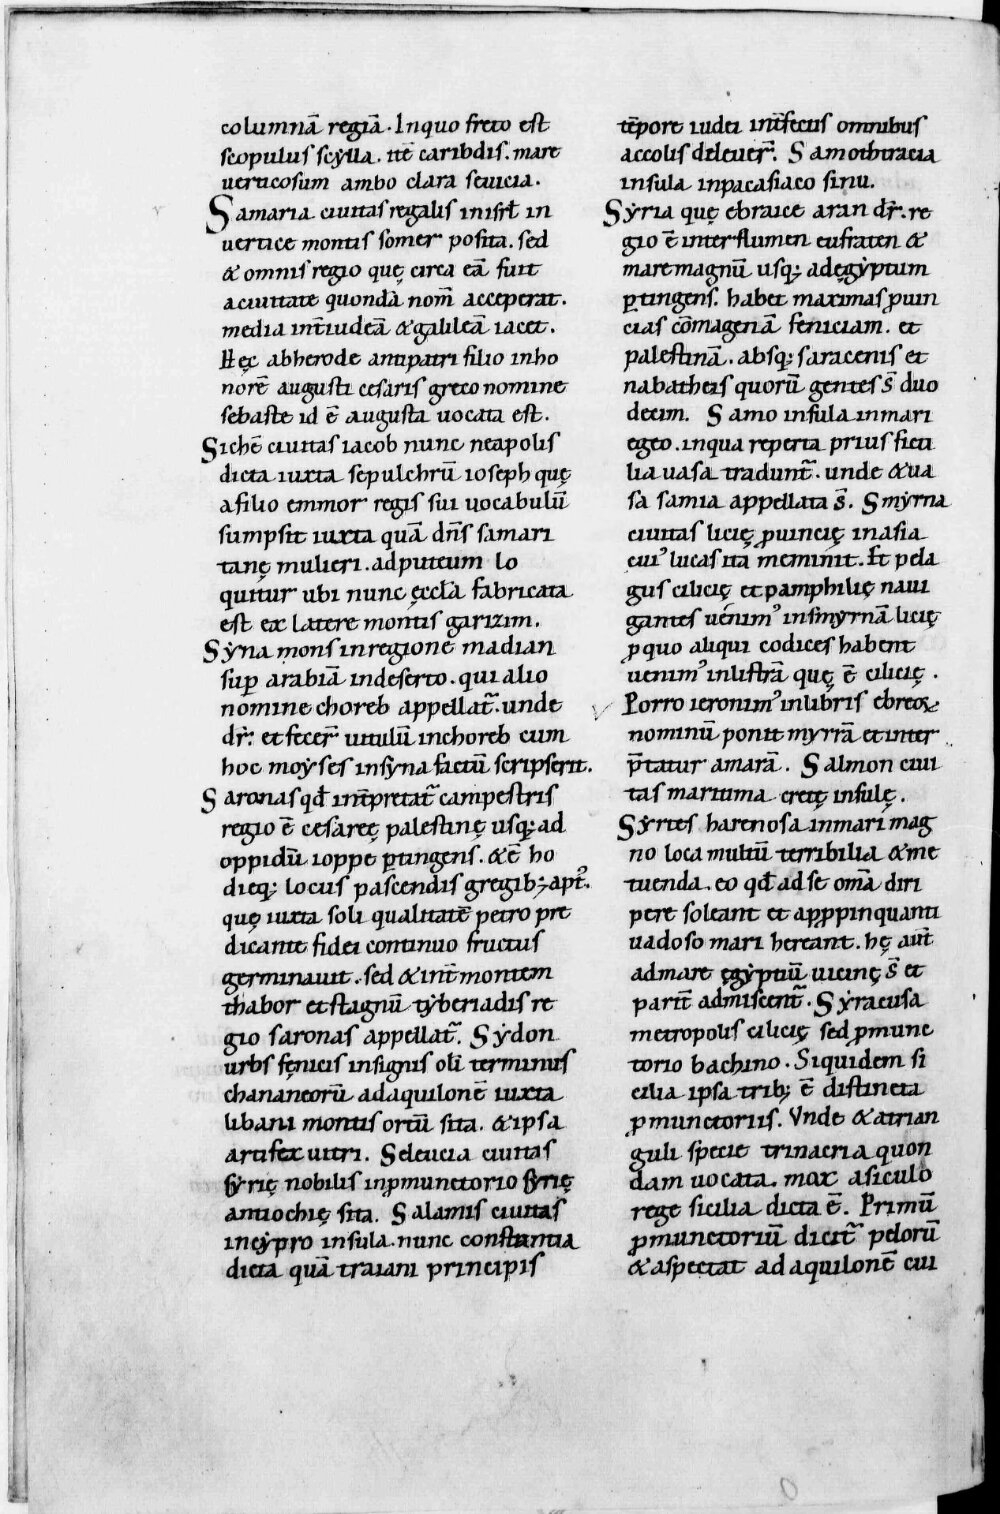 columnā regiā. Inquo freto est
scopulus scẏlla. itē caribdis. mare
uerticosum ambo clara seuicia.
Samaria ciuitas regalis inisrł in
uertice montis somer posita. sed
& omnis regio quę circa eā fuit
aciuitate quondā nom̄ acceperat.
media int̄iudeā &galileā iacet.
Hęc abherode antipatri filio inho
norē augusti cesaris greco nomine
sebaste id ē augusta uocata est.
Sichē ciuitas iacob nunc neapolis
dicta iuxta sepulchrū ioseph quę
afilio emmor regis sui uocabulū
sumpsit iuxta quā dn̄s samari
tanę mulieri. adputeum lo
quitur ubi nunc ęccła fabricata
est ex latere montis garizim.
Sẏna mons inregione madian
suꝑ arabiā indeserto. qui alio
nomine choreb appellat᷑. unde
dr̄. et fecer̄ uitulū inchoreb cum
hoc moẏses insyna factū scripserit.
Saronas qđ int̄pretat᷑ campestris
regio ē cesareę palestinę usq; ad
oppidū ioppe ꝑtingens. &ē ho
dieq; locus pascendis gregib; apt᾽.
quę iuxta soli qualitatē petro pre
dicante fidei continuo fructus
germinauit. sed &int̄ montem
thabor et stagnū tẏberiadis re
gio saronas appellat᷑. Sẏdon
urbs fęnicis insignis olī terminus
chananeorū adaquilonē iuxta
libani montis ortū sita. &ipsa
artifex uitri. Seleucia ciuitas
sẏrię nobilis inꝓmunctorio sẏrię
antiochię sita. Salamis ciuitas
incẏpro insula. nunc constantia
dicta quā traiani principis
tēpore iudei int̄fectis omnibus
accolis deleuer̄. Samothracia
insula inpacasiaco sinu.
Sẏria quę ebraice aran dr̄. re
gio ē inter flumen eufraten &
mare magnū usq; adęgẏptum
ꝑtingens. habet maximas ꝓuin
cias cōmagenā feniciam. et
palestinā. absq; saracenis et
nabatheis quorū gentes s̄ duo
decim. Samo insula inmari
egeo. inqua reperta prius fictι
lia uasa tradunt᷑. unde &ua
sa samia appellata s̄. Smẏrna
ciuitas licię ꝓuincię inasia
cui᾽ lucas ita meminit. Et pela
gus cilicię et pamphilię naui
gantes uenim᾽ insmyrnā licię
ꝓ quo aliqui codices habent
uenim᾽ inlistrā quę ē cilicię.
Porro ieronim᾽ inlibris ebreoꝝ
nominū ponit myrrā et inter
p̄tatur amarā. Salmon ciui
tas maritima cretę insulę.
Sẏrtes harenosa inmari mag
no loca multū terribilia &me
tuenda. eo qđ ad se om̄a diri
pere soleant et apꝓpinquanti
uadoso mari hereant. hę aut̄
admare ęgẏptiū uicinę s̄ et
parit̄ admiscent᷑. Sẏracusa
metropolis cilicię sed ꝓmunc
torio bachino. Siquidem si
cilia ipsa trib; ē distincta
ꝓmunctoriis. Vnde &atrian
guli specie trinacria quon
dam uocata. mox asiculo
rege sicilia dicta ē. Primū
ꝓmunctoriū dicit᷑ pelorū
&aspectat adaquilonē cui